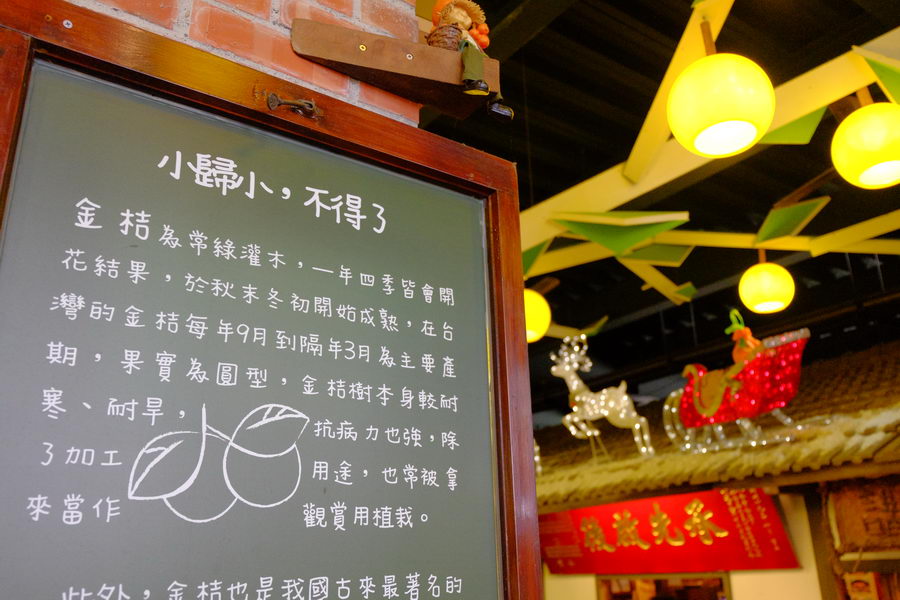 小歸小，不得了
金桔為常綠灌木，一年四季皆會開
花結果，於秋末冬初開始成熟，在台
灣的金桔每年9月到隔年3月為主要產
期，果實為圓型，金桔樹本身較耐
寒、耐旱，抗病力也強，除
了加工用途，也常被拿
來當作觀賞用植栽。
此外，金桔也是我國古來最著名的
承先啟後